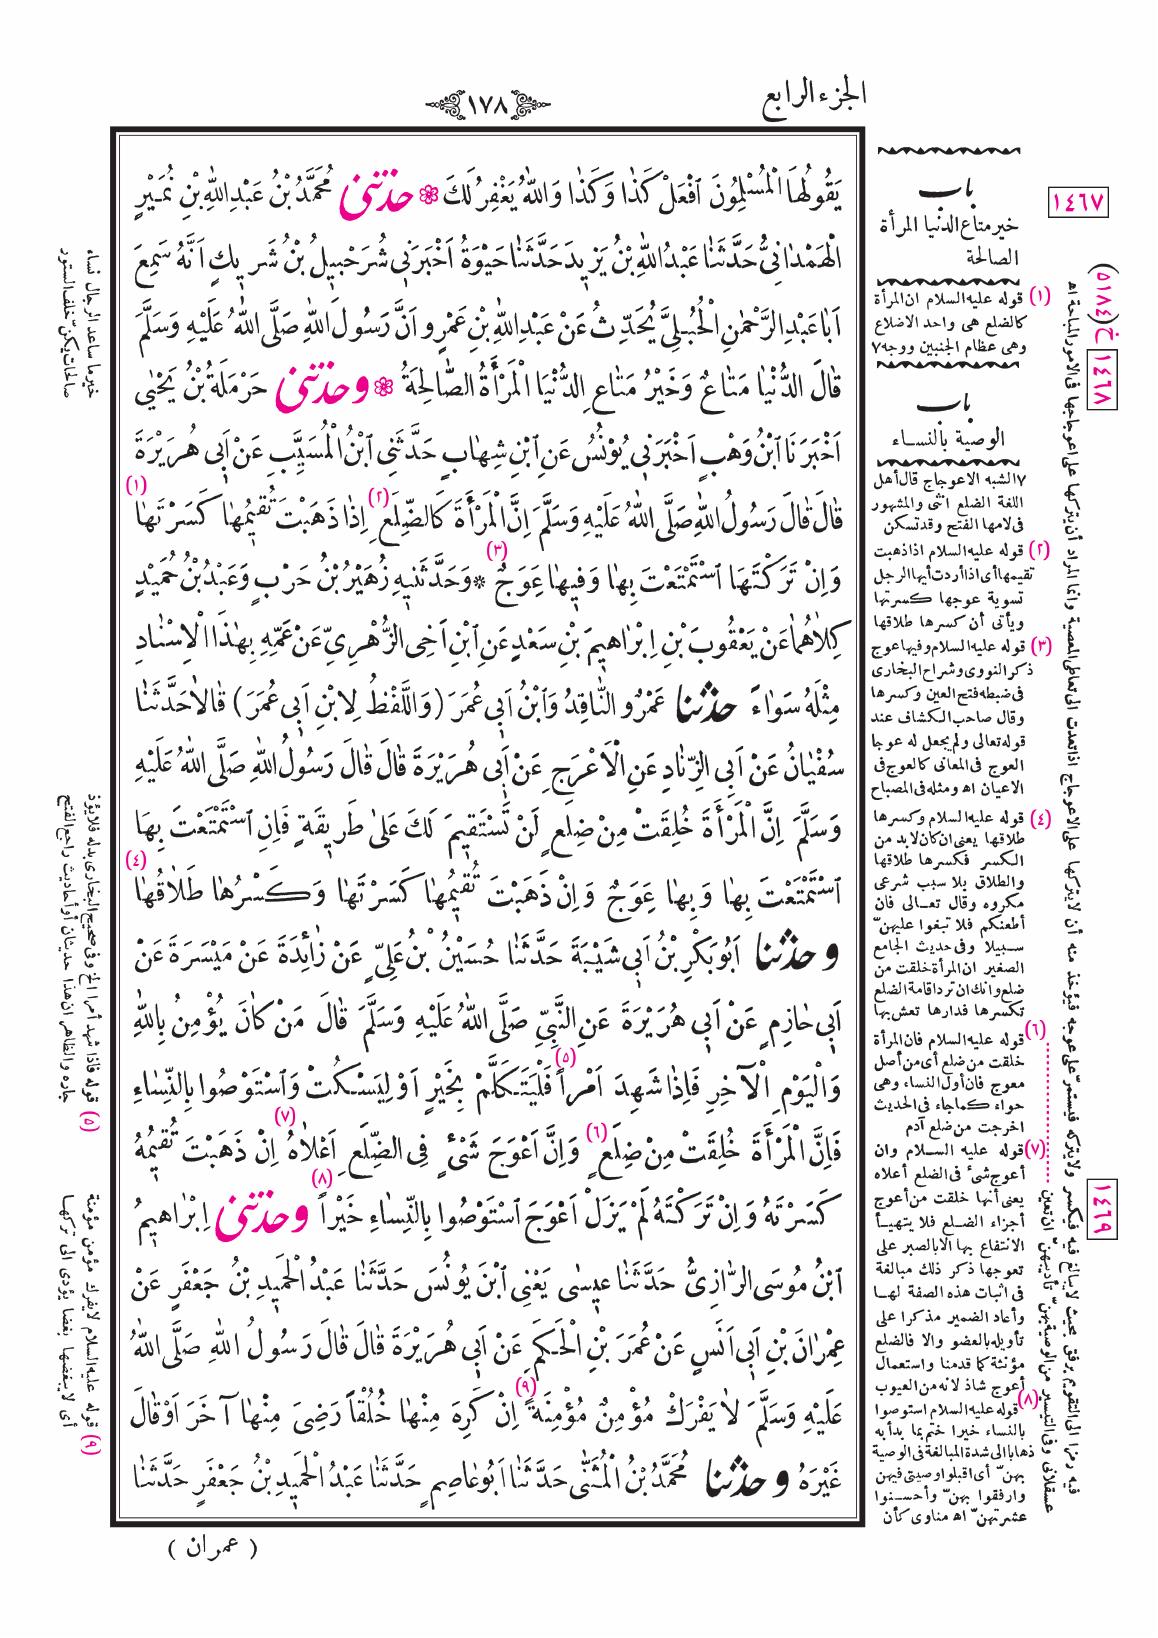 الجزء الرابع
١٧٨
يَقُولُهَا الْمُسْلِمُونَ اَفْعَلْ كَذَا وَكَذَا وَاللّٰهُ يَغْفِرُ لَكَ ❁ حدثنى مُحَمَّدُ بْنُ عَبْدِ اللّٰهِ بْنِ نُمَيْرٍ
الْهَمْدَانِىُّ حَدَّثَنَا عَبْدُ اللّٰهِ بْنُ يَزِيدَ حَدَّثَنَا حَيْوَةُ اَخْبَرَنِى شُرَحْبِيلُ بْنُ شَرِيكٍ اَنَّهُ سَمِعَ
اَبَا عَبْدِ الرَّحْمٰنِ الْحُبُلِىَّ يُحَدِّثُ عَنْ عَبْدِ اللّٰهِ بْنِ عَمْرٍو اَنَّ رَسُولَ اللّٰهِ صَلَّى اللّٰهُ عَلَيْهِ وَسَلَّمَ
قَالَ الدُّنْيَا مَتَاعٌ وَخَيْرُ مَتَاعِ الدُّنْيَا الْمَرْأَةُ الصَّالِحَةُ ❁ وحدثنى حَرْمَلَةُ بْنُ يَحْيٰى
اَخْبَرَنَا ابْنُ وَهْبٍ اَخْبَرَنِى يُونُسُ عَنِ ابْنِ شِهَابٍ حَدَّثَنِى ابْنُ الْمُسَيَّبِ عَنْ اَبِى هُرَيْرَةَ
قَالَ قَالَ رَسُولُ اللّٰهِ صَلَّى اللّٰهُ عَلَيْهِ وَسَلَّمَ اِنَّ الْمَرْأَةَ كَالضِّلَعِ (٢) اِذَا ذَهَبْتَ تُقِيمُهَا كَسَرْتَهَا (١)
وَاِنْ تَرَكْتَهَا اسْتَمْتَعْتَ بِهَا وَفِيهَا عِوَجٌ (٣) * وَحَدَّثَنِيهِ زُهَيْرُ بْنُ حَرْبٍ وَعَبْدُ بْنُ حُمَيْدٍ
كِلَاهُمَا عَنْ يَعْقُوبَ بْنِ اِبْرَاهِيمَ بْنِ سَعْدٍ عَنِ ابْنِ اَخِى الزُّهْرِىِّ عَنْ عَمِّهِ بِهٰذَا الْاِسْنَادِ
مِثْلَهُ سَوَاءً حدثنا عَمْرٌو النَّاقِدُ وَابْنُ اَبِى عُمَرَ (وَاللَّفْظُ لِابْنِ اَبِى عُمَرَ) قَالَا حَدَّثَنَا
سُفْيَانُ عَنْ اَبِى الزِّنَادِ عَنِ الْاَعْرَجِ عَنْ اَبِى هُرَيْرَةَ قَالَ قَالَ رَسُولُ اللّٰهِ صَلَّى اللّٰهُ عَلَيْهِ
وَسَلَّمَ اِنَّ الْمَرْأَةَ خُلِقَتْ مِنْ ضِلَعٍ لَنْ تَسْتَقِيمَ لَكَ عَلٰى طَرِيقَةٍ فَاِنِ اسْتَمْتَعْتَ بِهَا
اسْتَمْتَعْتَ بِهَا وَبِهَا عِوَجٌ وَاِنْ ذَهَبْتَ تُقِيمُهَا كَسَرْتَهَا وَكَسْرُهَا طَلَاقُهَا (٤)
وحدثنا اَبُو بَكْرِ بْنُ اَبِى شَيْبَةَ حَدَّثَنَا حُسَيْنُ بْنُ عَلِىٍّ عَنْ زَائِدَةَ عَنْ مَيْسَرَةَ عَنْ
اَبِى حَازِمٍ عَنْ اَبِى هُرَيْرَةَ عَنِ النَّبِىِّ صَلَّى اللّٰهُ عَلَيْهِ وَسَلَّمَ قَالَ مَنْ كَانَ يُؤْمِنُ بِاللّٰهِ
وَالْيَوْمِ الْآخِرِ فَاِذَا شَهِدَ اَمْراً (٥) فَلْيَتَكَلَّمْ بِخَيْرٍ اَوْ لِيَسْكُتْ وَاسْتَوْصُوا بِالنِّسَاءِ
فَاِنَّ الْمَرْأَةَ خُلِقَتْ مِنْ ضِلَعٍ (٦) وَاِنَّ اَعْوَجَ شَىْءٍ فِى الضِّلَعِ اَعْلَاهُ (٧) اِنْ ذَهَبْتَ تُقِيمُهُ
كَسَرْتَهُ وَاِنْ تَرَكْتَهُ لَمْ يَزَلْ اَعْوَجَ اسْتَوْصُوا بِالنِّسَاءِ خَيْراً (٨) وحدثنى اِبْرَاهِيمُ
ابْنُ مُوسَى الرَّازِىُّ حَدَّثَنَا عِيسٰى يَعْنِى ابْنَ يُونُسَ حَدَّثَنَا عَبْدُ الْحَمِيدِ بْنُ جَعْفَرٍ عَنْ
عِمْرَانَ بْنِ اَبِى اَنَسٍ عَنْ عُمَرَ بْنِ الْحَكَمِ عَنْ اَبِى هُرَيْرَةَ قَالَ قَالَ رَسُولُ اللّٰهِ صَلَّى اللّٰهُ
عَلَيْهِ وَسَلَّمَ لَا يَفْرَكْ مُؤْمِنٌ مُؤْمِنَةً (٩) اِنْ كَرِهَ مِنْهَا خُلُقاً رَضِىَ مِنْهَا آخَرَ اَوْ قَالَ
غَيْرَهُ وحدثنا مُحَمَّدُ بْنُ الْمُثَنّٰى حَدَّثَنَا اَبُو عَاصِمٍ حَدَّثَنَا عَبْدُ الْحَمِيدِ بْنُ جَعْفَرٍ حَدَّثَنَا
( عمران )
باب
خير متاع الدنيا المرأة
الصالحة
(١) قوله عليه السلام ان المرأة
كالضلع هى واحد الاضلاع
وهى عظام الجنبين ووجه ٧
باب
الوصية بالنساء
٧ الشبه الاعوجاج قال أهل
اللغة الضلع انثى والمشهور
فى لامها الفتح وقد تسكن
(٢) قوله عليه السلام اذا ذهبت
تقيمها أى اذا أردت أيها الرجل
تسوية عوجها كسرتها
ويأتى أن كسرها طلاقها
(٣) قوله عليه السلام وفيها عوج
ذكر النووى وشراح البخارى
فى ضبطه فتح العين وكسرها
وقال صاحب الكشاف عند
قوله تعالى ولم يجعل له عوجا
العوج فى المعانى كالعوج فى
الاعيان اه ومثله فى المصباح
(٤) قوله عليه السلام وكسرها
طلاقها يعنى ان كان لا بد من
الكسر فكسرها طلاقها
والطلاق بلا سبب شرعى
مكروه وقال تعالى فان
أطعنكم فلا تبغوا عليهنّ
سبيلا وفى حديث الجامع
الصغير ان المرأة خلقت من
ضلع وانك ان ترد اقامة الضلع
تكسرها فدارها تعش بها
(٦) قوله عليه السلام فان المرأة
خلقت من ضلع أى من أصل
معوج فان أول النساء وهى
حواء كما جاء فى الحديث
اخرجت من ضلع آدم
(٧) قوله عليه السلام وان
أعوج شىء فى الضلع أعلاه
يعنى أنها خلقت من أعوج
أجزاء الضلع فلا يتهيأ
الانتفاع بها الا بالصبر على
تعوجها ذكر ذلك مبالغة
فى اثبات هذه الصفة لها
وأعاد الضمير مذكرا على
تأويله بالعضو والا فالضلع
مؤنثة كما قدمنا واستعمال
أعوج شاذ لانه من العيوب
(٨) قوله عليه السلام استوصوا
بالنساء خيرا ختم بما بدأ به
ذهابا الى شدة المبالغة فى الوصية
بهنّ أى اقبلوا وصيتى فيهن
وارفقوا بهنّ وأحسنوا
عشرتهنّ اه مناوى كأن
١٤٦٧
خ (٥١٨٤)
١٤٦٨
١٤٦٩
فيه رمزا الى التقويم برفق بحيث لا يبالغ فيه فيكسر ولا يتركه فيستمرّ على عوجه فيؤخذ منه أن لا يتركها على الاعوجاج اذا تعدت الى تعاطى المعصية وانما المراد أن يتركها على اعوجاجها فى الامور المباحة اه
عسقلانى وفى التيسير من الوصية بهنّ تأديبهنّ ان تعين
خير ما ساعد الرجال نساء
صالحات يكنّ خلف الستور
(٥) قوله فاذا شهد أمرا الخ وفى صحيح البخارى بدله فلا يؤذ
جاره والظاهر ان هذا حديثان أو أحاديث راجع الفتح
(٩) قوله عليه السلام لا يفرك مؤمن مؤمنة
أى لا يبغضها بغضا يؤدى الى تركها